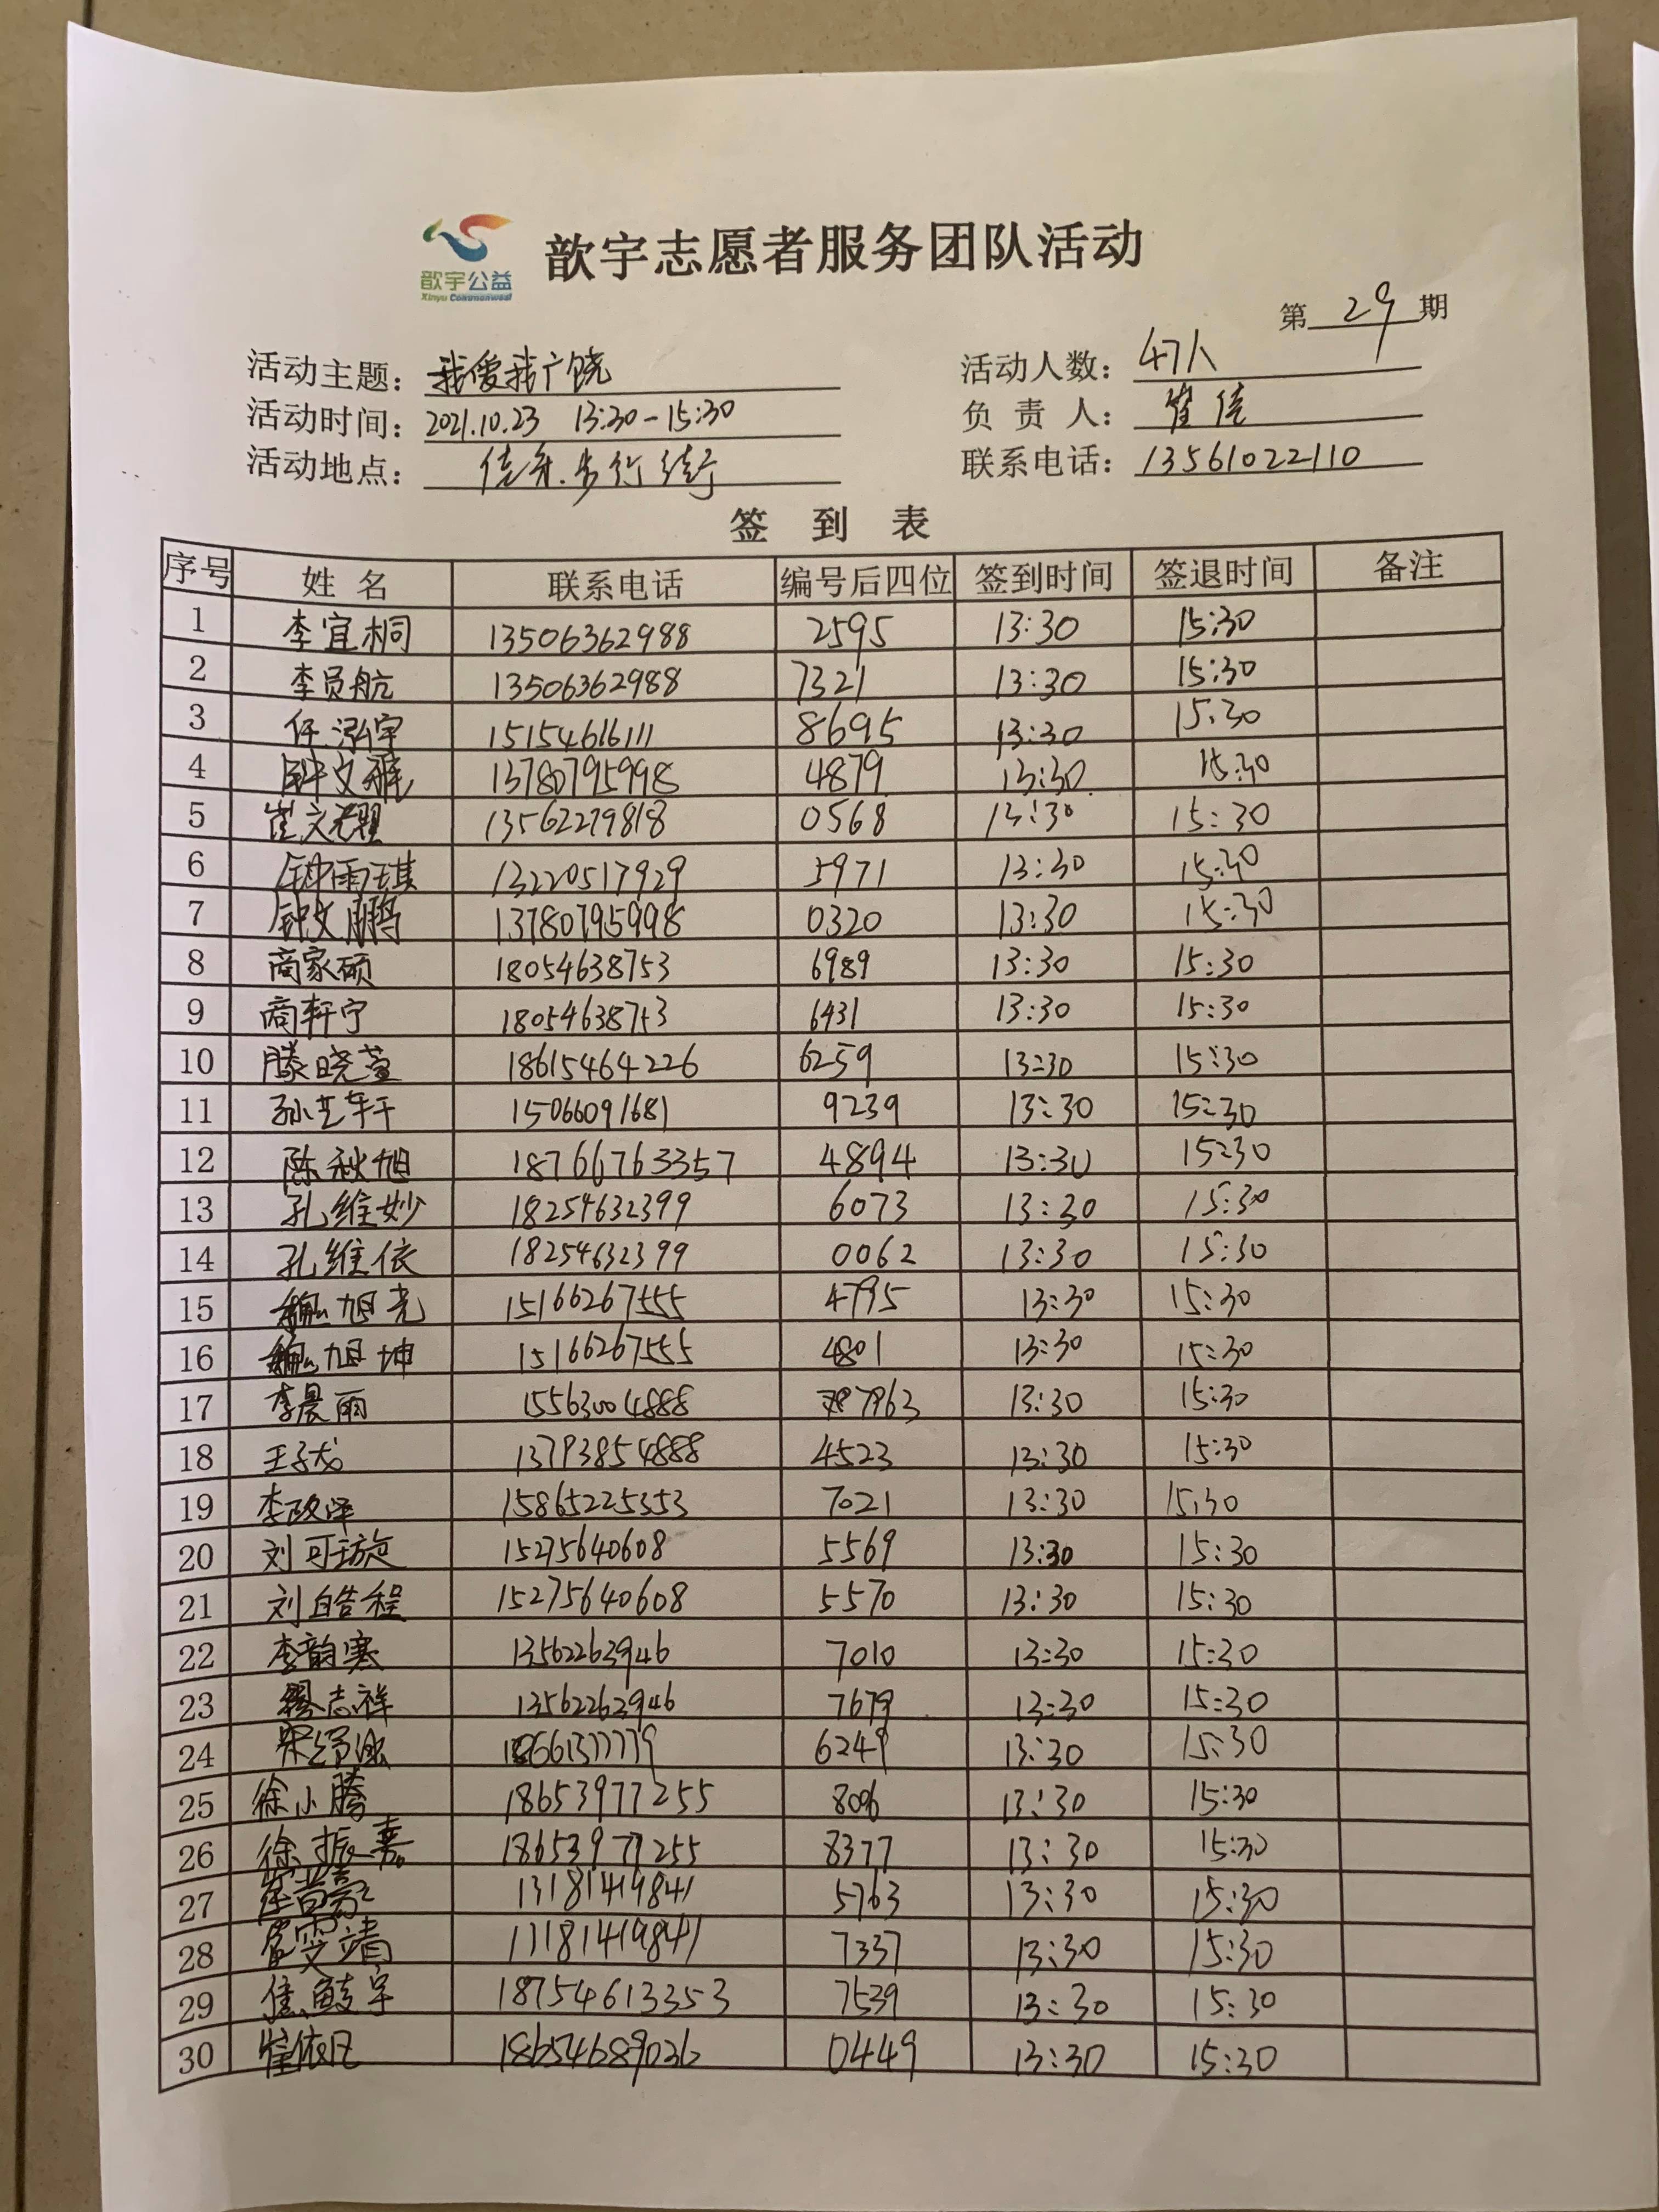 歆宇公益
Xinyu Commonweal
歆宇志愿者服务团队活动
第 29 期
活动主题： 我爱我广饶 活动人数： 47人
活动时间： 2021.10.23 13:30-15:30 负责人： 崔佳
活动地点： 佳乐步行街 联系电话： 13561022110
签到表
序号 姓名 联系电话 编号后四位 签到时间 签退时间 备注
1 李宜桐 13506362988 2595 13:30 15:30
2 李员航 13506362988 7321 13:30 15:30
3 任泓宇 15154616111 8695 13:30 15:30
4 钟文雅 13780795998 4879 13:30 15:30
5 崔文耀 13562279818 0568 13:30 15:30
6 钟雨琪 13220517929 5971 13:30 15:30
7 钟文鹏 13780795998 0320 13:30 15:30
8 商家硕 18054638753 6989 13:30 15:30
9 商轩宁 18054638753 6431 13:30 15:30
10 滕晓萱 18615464226 6259 13:30 15:30
11 孙艺轩 15066091681 9239 13:30 15:30
12 陈秋旭 18766763357 4894 13:30 15:30
13 孔维妙 18254632399 6073 13:30 15:30
14 孔维依 18254632399 0062 13:30 15:30
15 魏旭光 15166267555 4795 13:30 15:30
16 魏旭坤 15166267555 4801 13:30 15:30
17 李晨雨 15563004888 7963 13:30 15:30
18 王子龙 13793854888 4523 13:30 15:30
19 李政泽 15865225353 7021 13:30 15:30
20 刘可璇 15275640608 5569 13:30 15:30
21 刘皓程 15275640608 5570 13:30 15:30
22 李韵寒 13562263946 7010 13:30 15:30
23 志祥 13562263946 7679 13:30 15:30
24 18661377779 6249 13:30 15:30
25 徐小腾 18653977255 8096 13:30 15:30
26 徐振嘉 18653977255 8377 13:30 15:30
27 13181419841 5763 13:30 15:30
28 雯靖 13181419841 7337 13:30 15:30
29 焦鲮宇 18754613353 7539 13:30 15:30
30 崔依凡 18654689036 0449 13:30 15:30